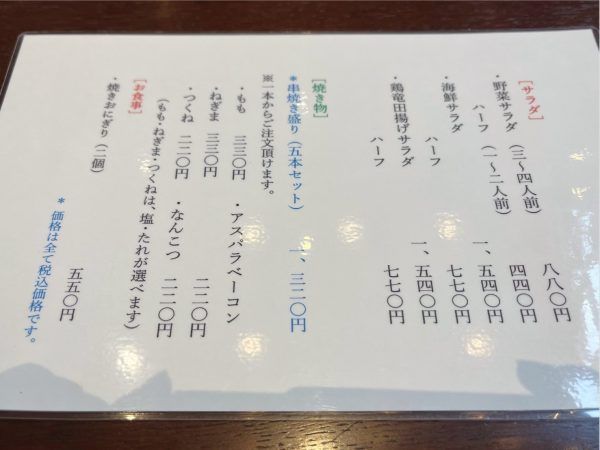 ［サラダ］
・野菜サラダ（三～四人前） 八八〇円
ハーフ（一～二人前） 四四〇円
・海鮮サラダ 一、五四〇円
ハーフ 七七〇円
・鶏竜田揚げサラダ 一、五四〇円
ハーフ 七七〇円
［焼き物］
＊串焼き盛り（五本セット） 一、三二〇円
※一本からご注文頂けます。
・もも 三三〇円 ・アスパラベーコン
・ねぎま 三三〇円 二二〇円
・つくね 二二〇円 ・なんこつ 二二〇円
（もも・ねぎま・つくねは、塩・たれが選べます）
［お食事］
・焼きおにぎり（二個） 五五〇円
＊価格は全て税込価格です。